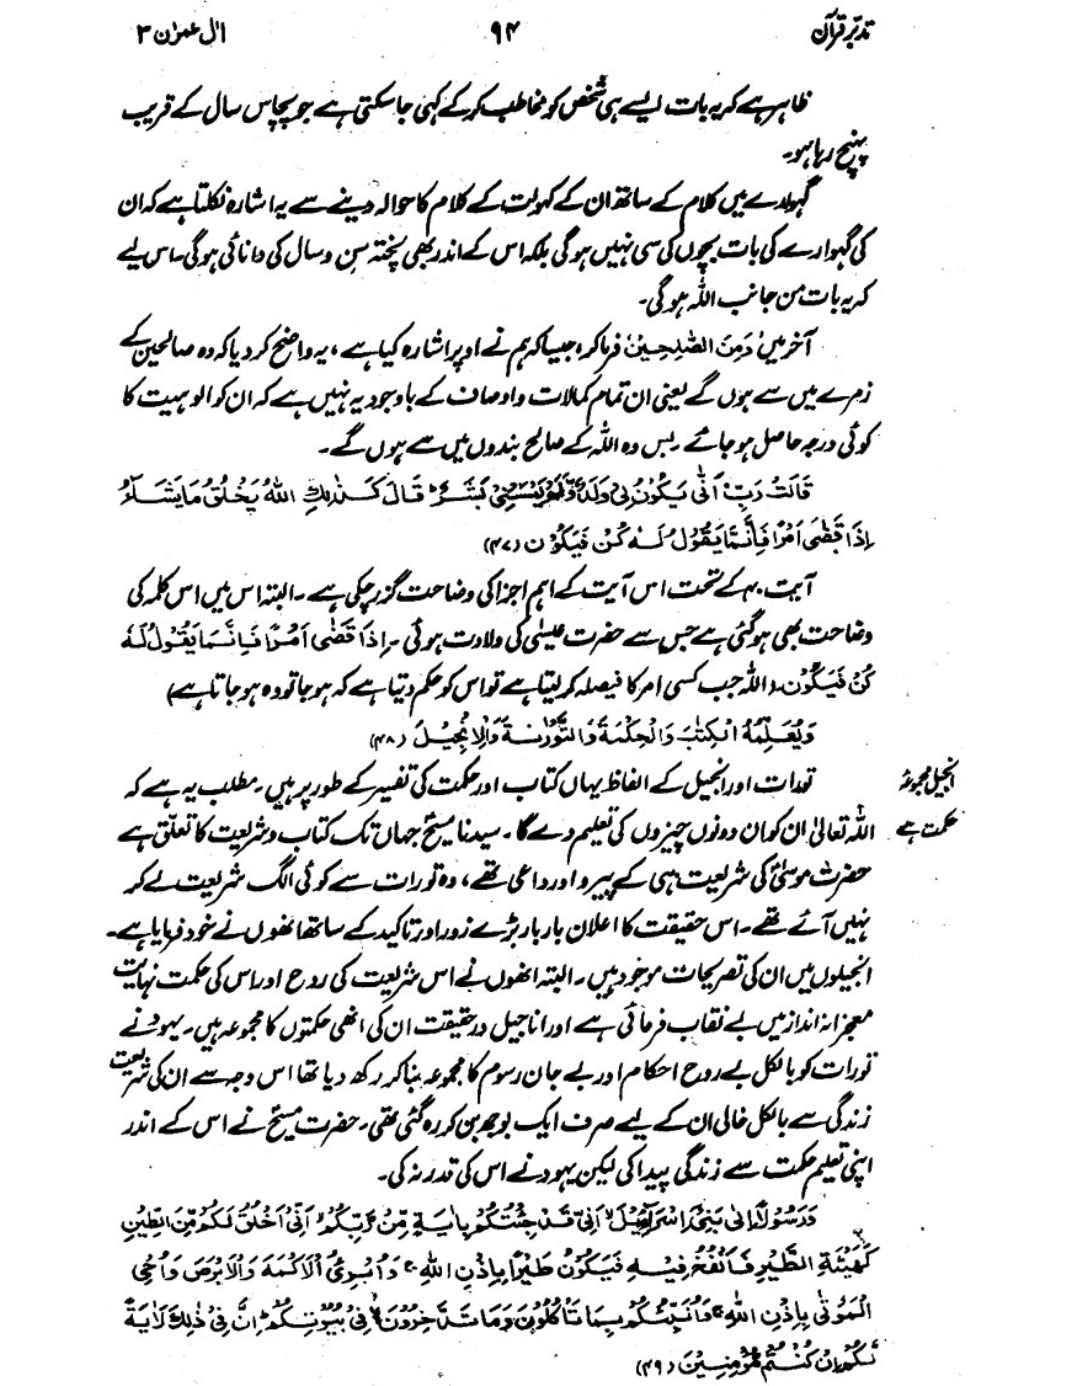 تدبّر قرآن
۹۴
اٰل عمرٰن ۳
ظاہر ہے کہ یہ بات ایسے ہی شخص کو مخاطب کر کے کہی جا سکتی ہے جو پچاس سال کے قریب
پہنچ رہا ہو۔
گہوارے میں کلام کے ساتھ ان کے کہولت کے کلام کا حوالہ دینے سے یہ اشارہ نکلتا ہے کہ ان
کی گہوارے کی بات بچوں کی سی نہیں ہو گی بلکہ اس کے اندر بھی پختہ سن و سال کی دانائی ہو گی۔ اس لیے
کہ یہ بات من جانب اللہ ہو گی۔
آخر میں 'وَمِنَ الصّٰلِحِیْنَ' فرما کر، جیسا کہ ہم نے اوپر اشارہ کیا ہے، یہ واضح کر دیا کہ وہ صالحین کے
زمرے میں سے ہوں گے یعنی ان تمام کمالات و اوصاف کے باوجود یہ نہیں ہے کہ ان کو الوہیت کا
کوئی درجہ حاصل ہو جائے۔ بس وہ اللہ کے صالح بندوں میں سے ہوں گے۔
قَالَتْ رَبِّ اَنّٰی یَکُوْنُ لِیْ وَلَدٌ وَّلَمْ یَمْسَسْنِیْ بَشَرٌ ؕ قَالَ کَذٰلِکِ اللّٰہُ یَخْلُقُ مَا یَشَآءُ
اِذَا قَضٰٓی اَمْرًا فَاِنَّمَا یَقُوْلُ لَہٗ کُنْ فَیَکُوْن (۴۷)
آیت ۴۰ کے تحت اس آیت کے اہم اجزا کی وضاحت گزر چکی ہے۔ البتہ اس میں اس کلمہ کی
وضاحت بھی ہو گئی ہے جس سے حضرت عیسیٰؑ کی ولادت ہوئی۔ اِذَا قَضٰٓی اَمْرًا فَاِنَّمَا یَقُوْلُ لَہٗ
کُنْ فَیَکُوْن (اللہ جب کسی امر کا فیصلہ کر لیتا ہے تو اس کو حکم دیتا ہے کہ ہو جا تو وہ ہو جاتا ہے)
وَیُعَلِّمُہُ الْکِتٰبَ وَالْحِکْمَۃَ وَالتَّوْرٰىۃَ وَالْاِنْجِیْلَ (۴۸)
تورات اور انجیل کے الفاظ یہاں کتاب اور حکمت کی تفسیر کے طور پر ہیں۔ مطلب یہ ہے کہ
انجیل مجموعۂ
اللہ تعالیٰ ان کو ان دونوں چیزوں کی تعلیم دے گا۔ سیدنا مسیحؑ جہاں تک کتاب و شریعت کا تعلق ہے
حکمت ہے
حضرت موسیٰؑ کی شریعت ہی کے پیرو اور داعی تھے، وہ تورات سے کوئی الگ شریعت لے کر
نہیں آئے تھے۔ اس حقیقت کا اعلان بار بار بڑے زور اور تاکید کے ساتھ انھوں نے خود فرمایا ہے۔
انجیلوں میں ان کی تصریحات موجود ہیں۔ البتہ انھوں نے اس شریعت کی روح اور اس کی حکمت نہایت
معجزانہ انداز میں بے نقاب فرمائی ہے اور اناجیل درحقیقت ان کی انھی حکمتوں کا مجموعہ ہیں۔ یہود نے
تورات کو بالکل بے روح احکام اور بے جان رسوم کا مجموعہ بنا کر رکھ دیا تھا اس وجہ سے ان کی شریعت
زندگی سے بالکل خالی ان کے لیے صرف ایک بوجھ بن کر رہ گئی تھی۔ حضرت مسیحؑ نے اس کے اندر
اپنی تعلیم حکمت سے زندگی پیدا کی لیکن یہود نے اس کی قدر نہ کی۔
وَرَسُوْلًا اِلٰی بَنِیْٓ اِسْرَآءِیْلَ ۙ اَنِّیْ قَدْ جِئْتُکُمْ بِاٰیَۃٍ مِّنْ رَّبِّکُمْ ۙ اَنِّیْٓ اَخْلُقُ لَکُمْ مِّنَ الطِّیْنِ
کَہَیْئَۃِ الطَّیْرِ فَاَنْفُخُ فِیْہِ فَیَکُوْنُ طَیْرًا بِاِذْنِ اللّٰہِ ۚ وَاُبْرِئُ الْاَکْمَہَ وَالْاَبْرَصَ وَاُحْیِ
الْمَوْتٰی بِاِذْنِ اللّٰہِ ۚ وَاُنَبِّئُکُمْ بِمَا تَاْکُلُوْنَ وَمَا تَدَّخِرُوْنَ ۙ فِیْ بُیُوْتِکُمْ ؕ اِنَّ فِیْ ذٰلِکَ لَاٰیَۃً
لَّکُمْ اِنْ کُنْتُمْ مُّؤْمِنِیْنَ (۴۹)